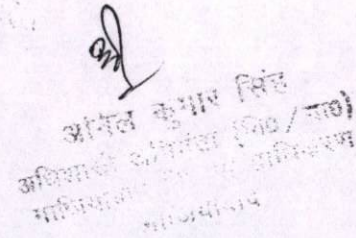 अनिल कुमार सिंह
अधिशासी अभियंता (वि0/या0)
गाजियाबाद प्राधिकरण
गाजियाबाद